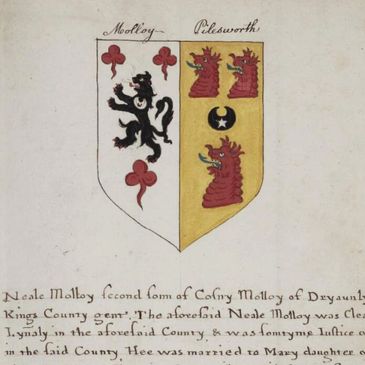 Molloy Pilesworth
Neale Molloy second sonn of Cosny Molloy of
Kings County gent. The aforesaid Neale Molloy was
Lynaly in the aforesaid County & was somtyme Iustice
in the said County Hee was married to Mary daughter